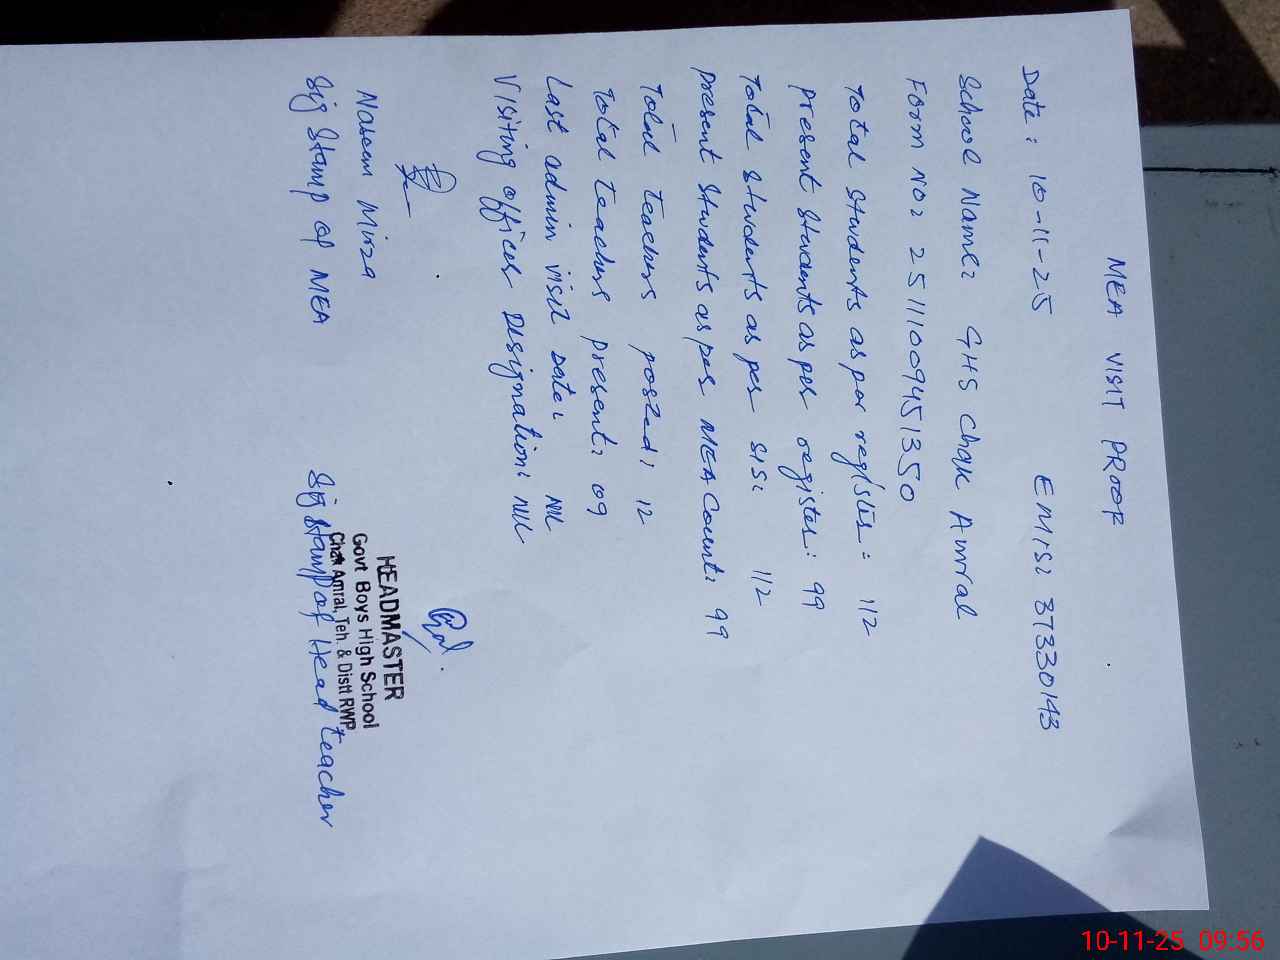 MEA VISIT PROOF
Date: 10-11-25 EMIS: 37330143
School Name: GHS Chak Amral
Form No: 25111009451350
Total Students as per register: 112
Present Students as per register: 99
Total Students as per SIS: 112
Present Students as per MEA Count: 99
Total teachers posted: 12
Total teachers present: 09
Last admin visit Date: NIL
Visiting officer Designation: NIL
Naseem Mirza
Sig Stamp of MEA
HEADMASTER
Govt Boys High School
Chak Amral, Teh. & Distt RWP
Sig Stamp of Head teacher
10-11-25 09:56